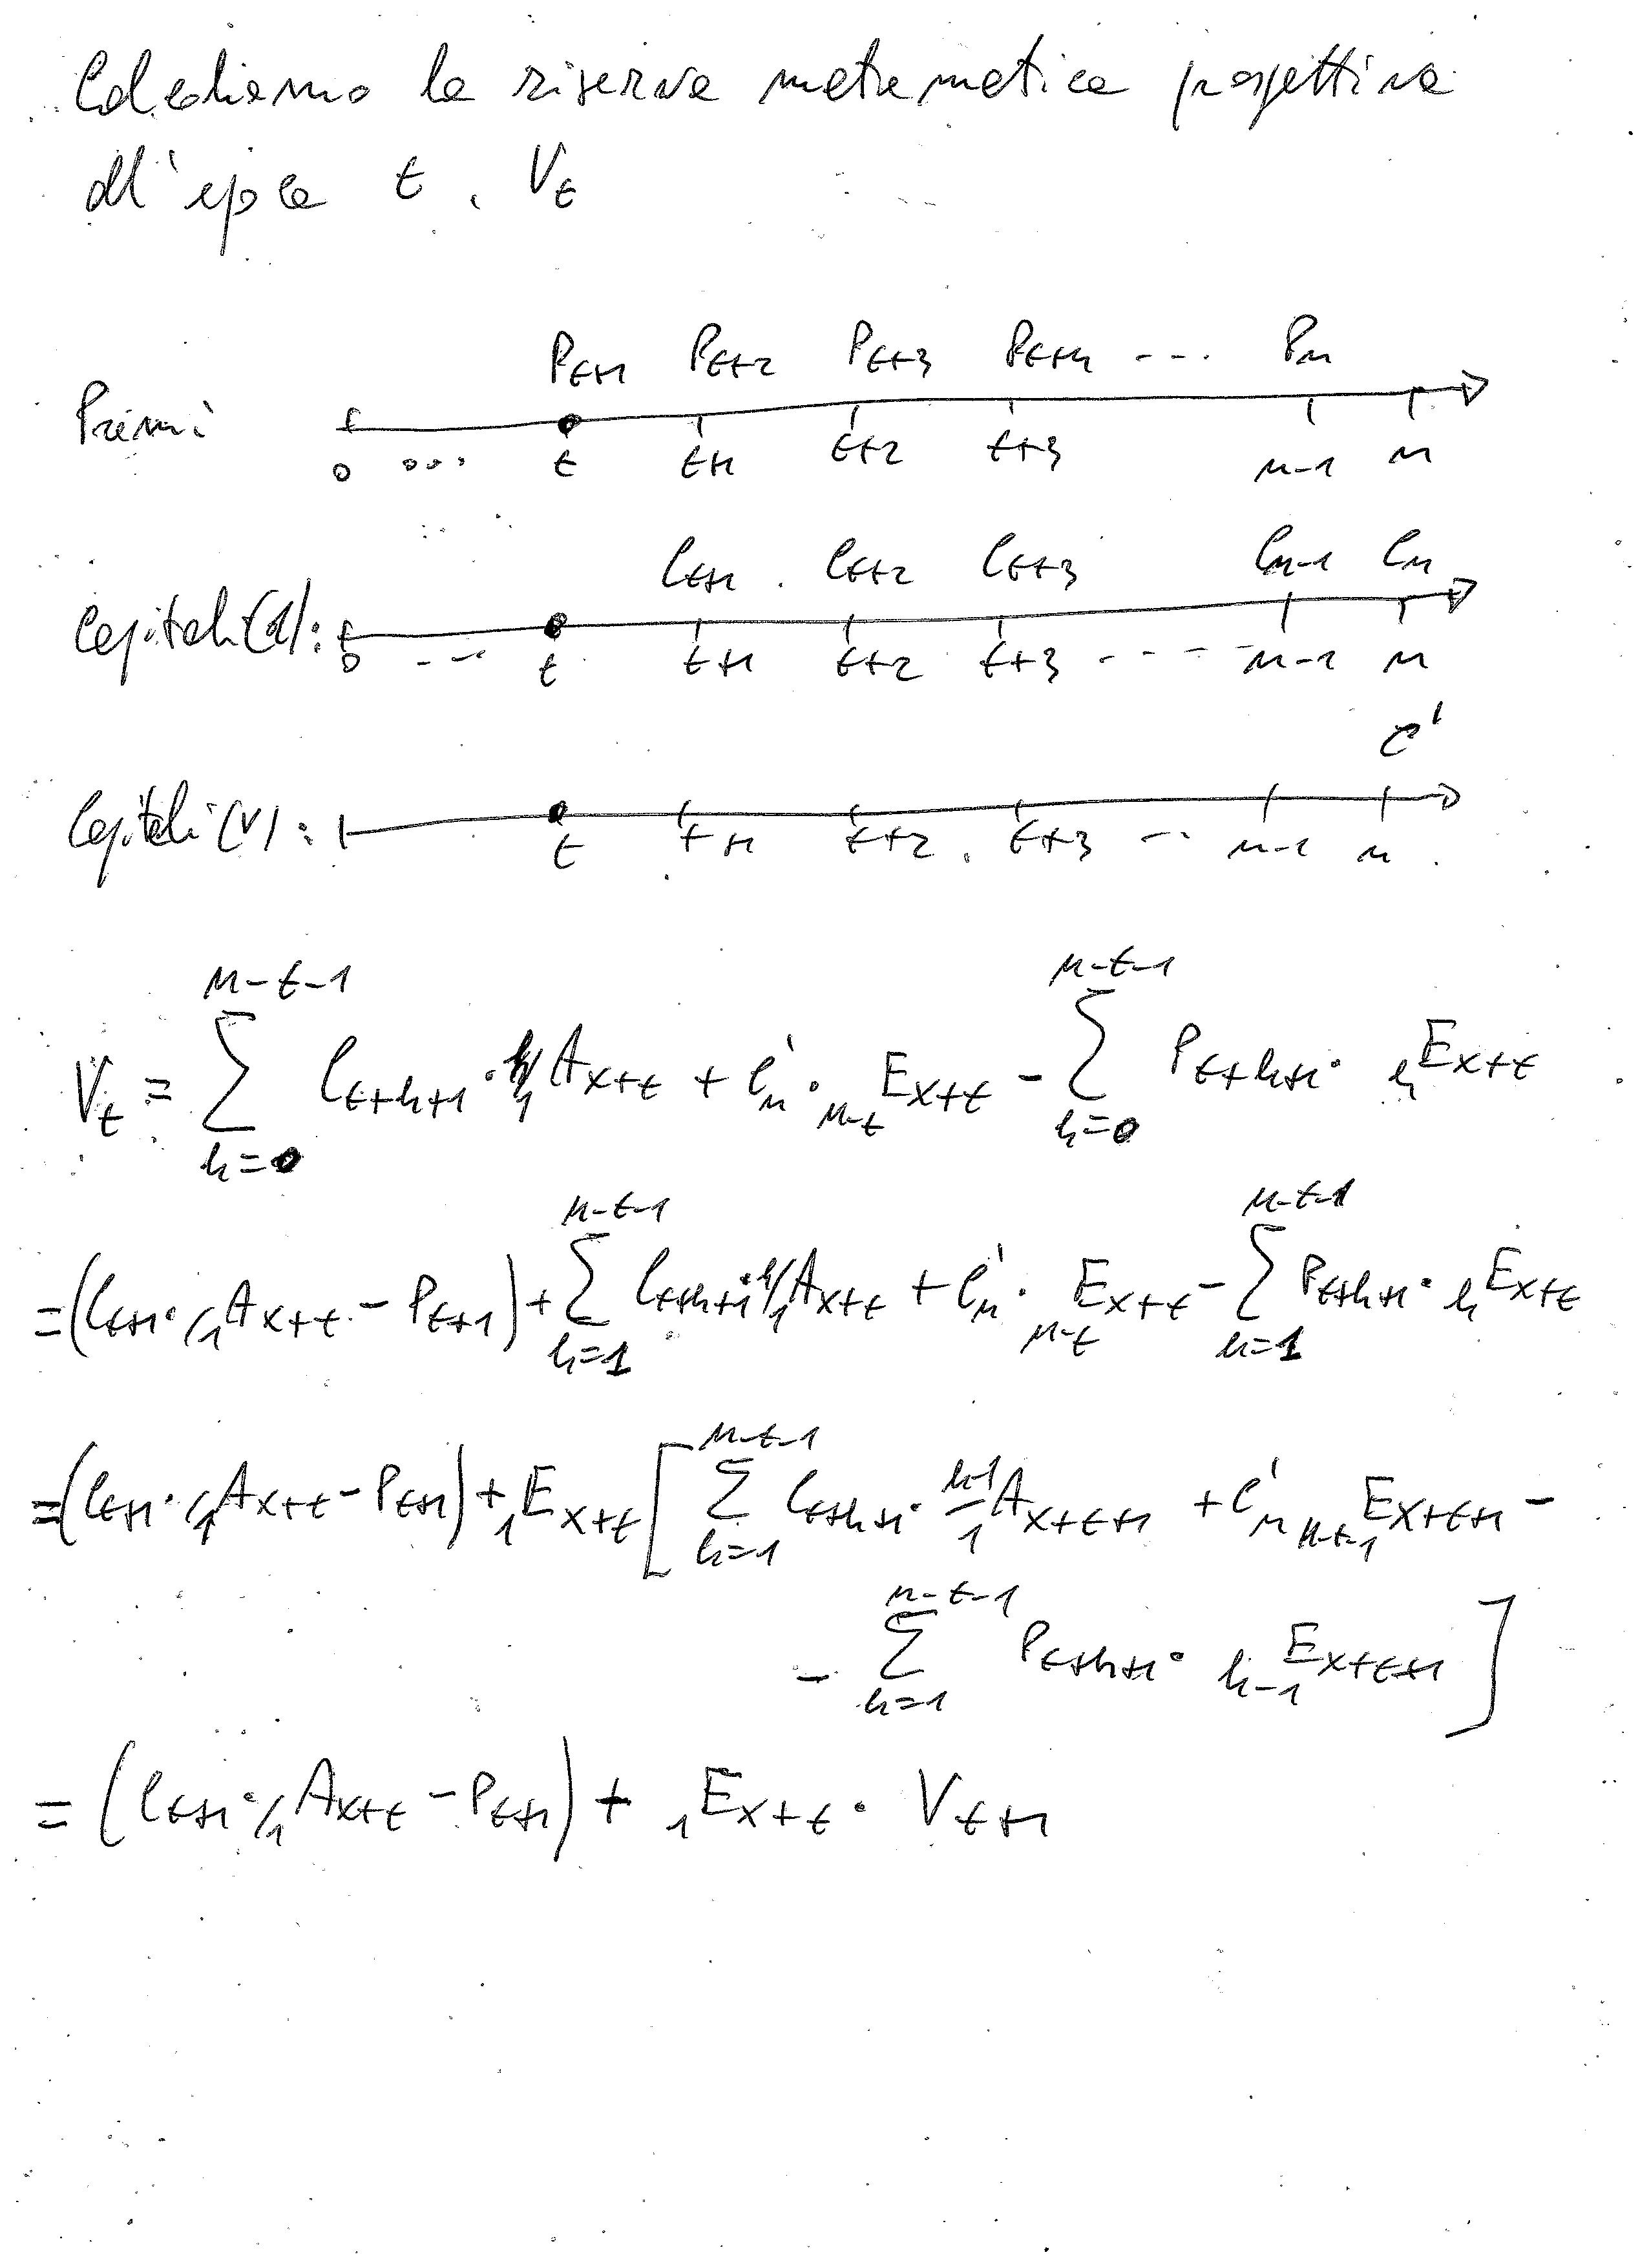 Calcoliamo la riserva matematica prospettiva
all'epoca t. V_t
P_{t+1} P_{t+2} P_{t+3} P_{t+4} --- P_n
Premi
0 ... t t+1 t+2 t+3 n-1 n
C_{t+1} C_{t+2} C_{t+3} C_{n-1} C_n
Capitali(d):
0 --- t t+1 t+2 t+3 ---- n-1 n
C'
Capitali(V):
t t+1 t+2 t+3 -- n-1 n
V_t = \sum_{h=0}^{n-t-1} C_{t+h+1} · {}_{h/1}A_{x+t} + C'_n · {}_{n-t}E_{x+t} - \sum_{h=0}^{n-t-1} P_{t+h+1} · {}_{h}E_{x+t}
= (C_{t+1} · {}_{/1}A_{x+t} - P_{t+1}) + \sum_{h=1}^{n-t-1} C_{t+h+1} · {}_{h/1}A_{x+t} + C'_n · {}_{n-t}E_{x+t} - \sum_{h=1}^{n-t-1} P_{t+h+1} · {}_{h}E_{x+t}
= (C_{t+1} · {}_{/1}A_{x+t} - P_{t+1}) + {}_{1}E_{x+t} [ \sum_{h=1}^{n-t-1} C_{t+h+1} · {}_{h-1/1}A_{x+t+1} + C'_n {}_{n-t-1}E_{x+t+1} -
- \sum_{h=1}^{n-t-1} P_{t+h+1} · {}_{h-1}E_{x+t+1} ]
= (C_{t+1} · {}_{/1}A_{x+t} - P_{t+1}) + {}_{1}E_{x+t} · V_{t+1}